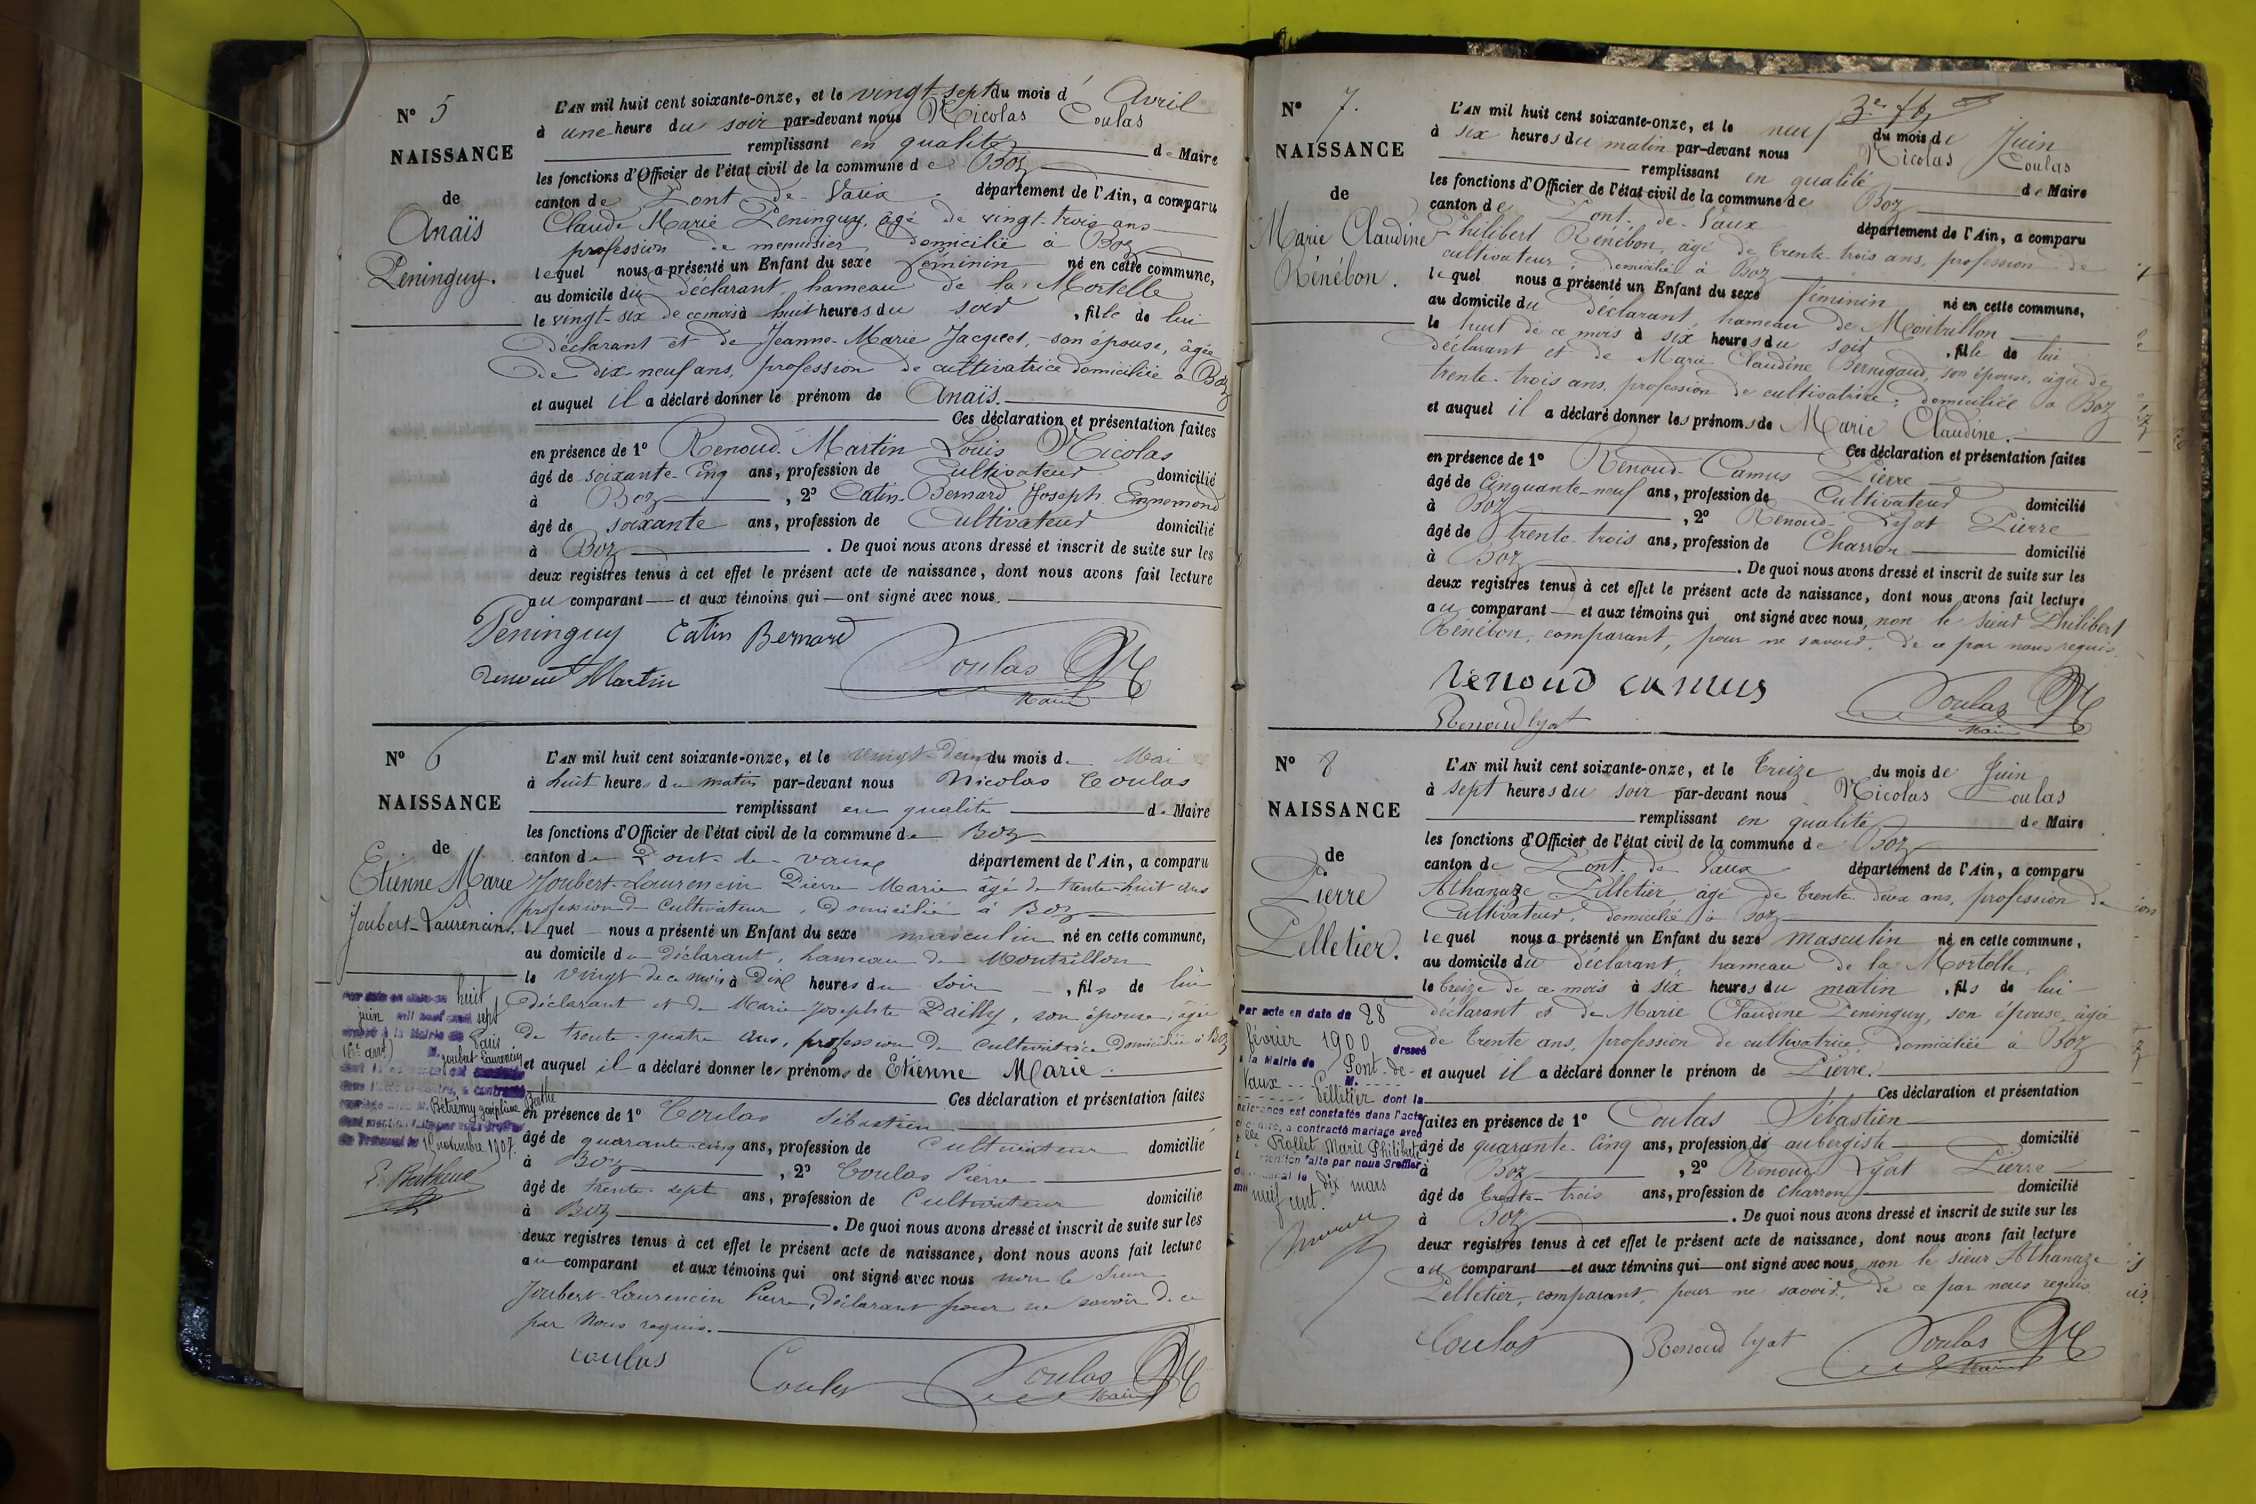 N° 5
NAISSANCE
de
Anaïs
Peninguy.
L'AN mil huit cent soixante-onze, et le vingt-sept du mois d'Avril
à une heure du soir par-devant nous Nicolas Coulas
remplissant en qualité de Maire
les fonctions d'Officier de l'état civil de la commune de Boz
canton de Pont-de-Vaux département de l'Ain, a comparu
Claude Marie Peninguy, âgé de vingt-trois ans
profession de menuisier domicilié à Boz
lequel nous a présenté un Enfant du sexe féminin né en cette commune,
au domicile du déclarant, hameau de la Mortelle
le vingt-six de ce mois à huit heures du soir, fille de lui
déclarant et de Jeanne-Marie Jacquet, son épouse, âgée
de dix-neuf ans, profession de cultivatrice domiciliée à Boz
et auquel il a déclaré donner le prénom de Anaïs.
Ces déclaration et présentation faites
en présence de 1° Renoud-Martin Louis Nicolas
âgé de soixante-cinq ans, profession de Cultivateur domicilié
à Boz, 2° Catin-Bernard Joseph Ennemond
âgé de soixante ans, profession de Cultivateur domicilié
à Boz. De quoi nous avons dressé et inscrit de suite sur les
deux registres tenus à cet effet le présent acte de naissance, dont nous avons fait lecture
au comparant et aux témoins qui ont signé avec nous.
Peninguy Catin Bernard
Renoud Martin Coulas N
Maire
N° 6
NAISSANCE
de
Etienne Marie
Joubert-Laurencin.
L'AN mil huit cent soixante-onze, et le vingt-deux du mois de Mai
à huit heures du matin par-devant nous Nicolas Coulas
remplissant en qualité de Maire
les fonctions d'Officier de l'état civil de la commune de Boz
canton de Pont-de-vaux département de l'Ain, a comparu
Joubert-Laurencin Pierre Marie âgé de trente-huit ans
profession de Cultivateur, domicilié à Boz
lequel nous a présenté un Enfant du sexe masculin né en cette commune,
au domicile du déclarant, hameau de Montrillon
le vingt de ce mois à dix heures du soir, fils de lui
déclarant et de Marie Josephte Pailly, son épouse, âgée
de trente-quatre ans, profession de cultivatrice domiciliée à Boz
et auquel il a déclaré donner les prénoms de Etienne Marie.
Ces déclaration et présentation faites
en présence de 1° Coulas Sébastien
âgé de quarante-cinq ans, profession de Cultivateur domicilié
à Boz, 2° Coulas Pierre
âgé de trente-sept ans, profession de Cultivateur domicilié
à Boz. De quoi nous avons dressé et inscrit de suite sur les
deux registres tenus à cet effet le présent acte de naissance, dont nous avons fait lecture
au comparant et aux témoins qui ont signé avec nous non le sieur
Joubert-Laurencin Pierre, déclarant pour ne savoir de ce
par nous requis.
coulas Coulas Coulas N
Maire
Par acte en date du huit
juin mil neuf cent sept
dressé à la Mairie de Paris
M. Joubert Laurencin
Bétrémy Joséphine
novembre 1907.
N° 7.
NAISSANCE
de
Marie Claudine
Rénébon.
L'AN mil huit cent soixante-onze, et le neuf du mois de Juin
à six heures du matin par-devant nous Nicolas Coulas
remplissant en qualité de Maire
les fonctions d'Officier de l'état civil de la commune de Boz
canton de Pont-de-Vaux département de l'Ain, a comparu
Philibert Rénébon, âgé de trente-trois ans, profession de
cultivateur, domicilié à Boz
lequel nous a présenté un Enfant du sexe féminin né en cette commune,
au domicile du déclarant, hameau de Montrillon
le huit de ce mois à six heures du soir, fille de lui
déclarant et de Marie Claudine Bernigaud, son épouse, âgée de
trente-trois ans, profession de cultivatrice, domiciliée à Boz
et auquel il a déclaré donner les prénoms de Marie Claudine.
Ces déclaration et présentation faites
en présence de 1° Renoud-Camus Pierre
âgé de Cinquante-neuf ans, profession de Cultivateur domicilié
à Boz, 2° Renoud-Lyat Pierre
âgé de trente-trois ans, profession de Charron domicilié
à Boz. De quoi nous avons dressé et inscrit de suite sur les
deux registres tenus à cet effet le présent acte de naissance, dont nous avons fait lecture
au comparant et aux témoins qui ont signé avec nous, non le sieur Philibert
Rénébon, comparant, pour ne savoir, de ce par nous requis.
Renoud camus
Renoud lyat Coulas N
Maire
N° 8
NAISSANCE
de
Pierre
Pelletier.
L'AN mil huit cent soixante-onze, et le treize du mois de Juin
à sept heures du soir par-devant nous Nicolas Coulas
remplissant en qualité de Maire
les fonctions d'Officier de l'état civil de la commune de Boz
canton de Pont-de-Vaux département de l'Ain, a comparu
Athanaze Pelletier, âgé de trente-deux ans, profession de
Cultivateur, domicilié à Boz
lequel nous a présenté un Enfant du sexe masculin né en cette commune,
au domicile du déclarant, hameau de la Mortelle,
le treize de ce mois à six heures du matin, fils de lui
déclarant et de Marie Claudine Peninguy, son épouse, âgée
de trente ans, profession de cultivatrice, domiciliée à Boz
et auquel il a déclaré donner le prénom de Pierre.
Ces déclaration et présentation
faites en présence de 1° Coulas Sébastien
âgé de quarante-cinq ans, profession de aubergiste domicilié
à Boz, 2° Renoud Lyat Pierre
âgé de trente-trois ans, profession de charron domicilié
à Boz. De quoi nous avons dressé et inscrit de suite sur les
deux registres tenus à cet effet le présent acte de naissance, dont nous avons fait lecture
au comparant et aux témoins qui ont signé avec nous non le sieur Athanaze
Pelletier, comparant, pour ne savoir, de ce par nous requis.
Coulas Renoud lyat Coulas N
Maire
Par acte en date du 28
février 1900 dressé
à la Mairie de Pont-de-
Vaux M.
Pelletier dont la
naissance est constatée dans l'acte
a contracté mariage avec
Rollet Marie Philiberte
mention faite par nous Greffier
le dix mars
mil neuf cent.